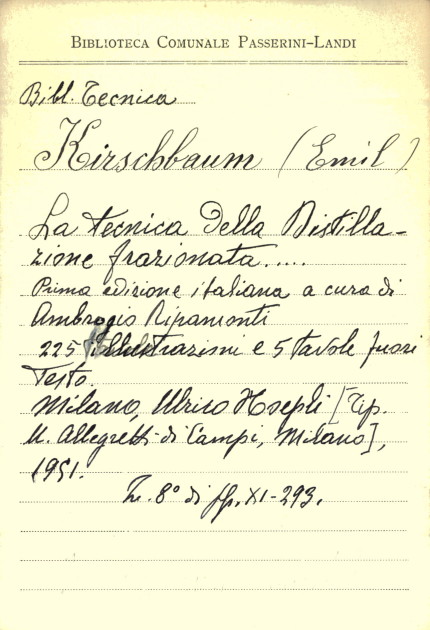 BIBLIOTECA COMUNALE PASSERINI-LANDI
Bibl. Tecnica
Kirschbaum (Emil)
La tecnica della Distilla-
zione frazionata.....
Prima edizione italiana a cura di
Ambrogio Ripamonti
225 illustrazioni e 5 tavole fuori
Testo.
Milano, Ulrico Hoepli [Tip.
U. Allegretti di Campi, Milano],
1951.
In 8° di pp. XI-293.